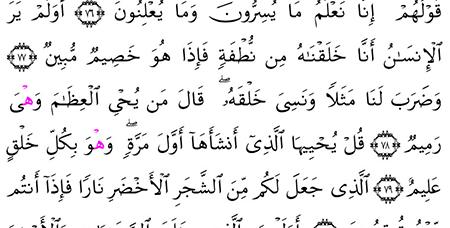 قَوْلُهُمْ إِنَّا نَعْلَمُ مَا يُسِرُّونَ وَمَا يُعْلِنُونَ ٧٦ أَوَلَمْ يَرَ
ٱلْإِنسَٰنُ أَنَّا خَلَقْنَٰهُ مِن نُّطْفَةٖ فَإِذَا هُوَ خَصِيمٞ مُّبِينٞ ٧٧
وَضَرَبَ لَنَا مَثَلٗا وَنَسِيَ خَلْقَهُۥۖ قَالَ مَن يُحْيِ ٱلْعِظَٰمَ وَهْيَ
رَمِيمٞ ٧٨ قُلْ يُحْيِيهَا ٱلَّذِيٓ أَنشَأَهَآ أَوَّلَ مَرَّةٖۖ وَهْوَ بِكُلِّ خَلْقٍ
عَلِيمٌ ٧٩ ٱلَّذِي جَعَلَ لَكُم مِّنَ ٱلشَّجَرِ ٱلْأَخْضَرِ نَارٗا فَإِذَآ أَنتُم